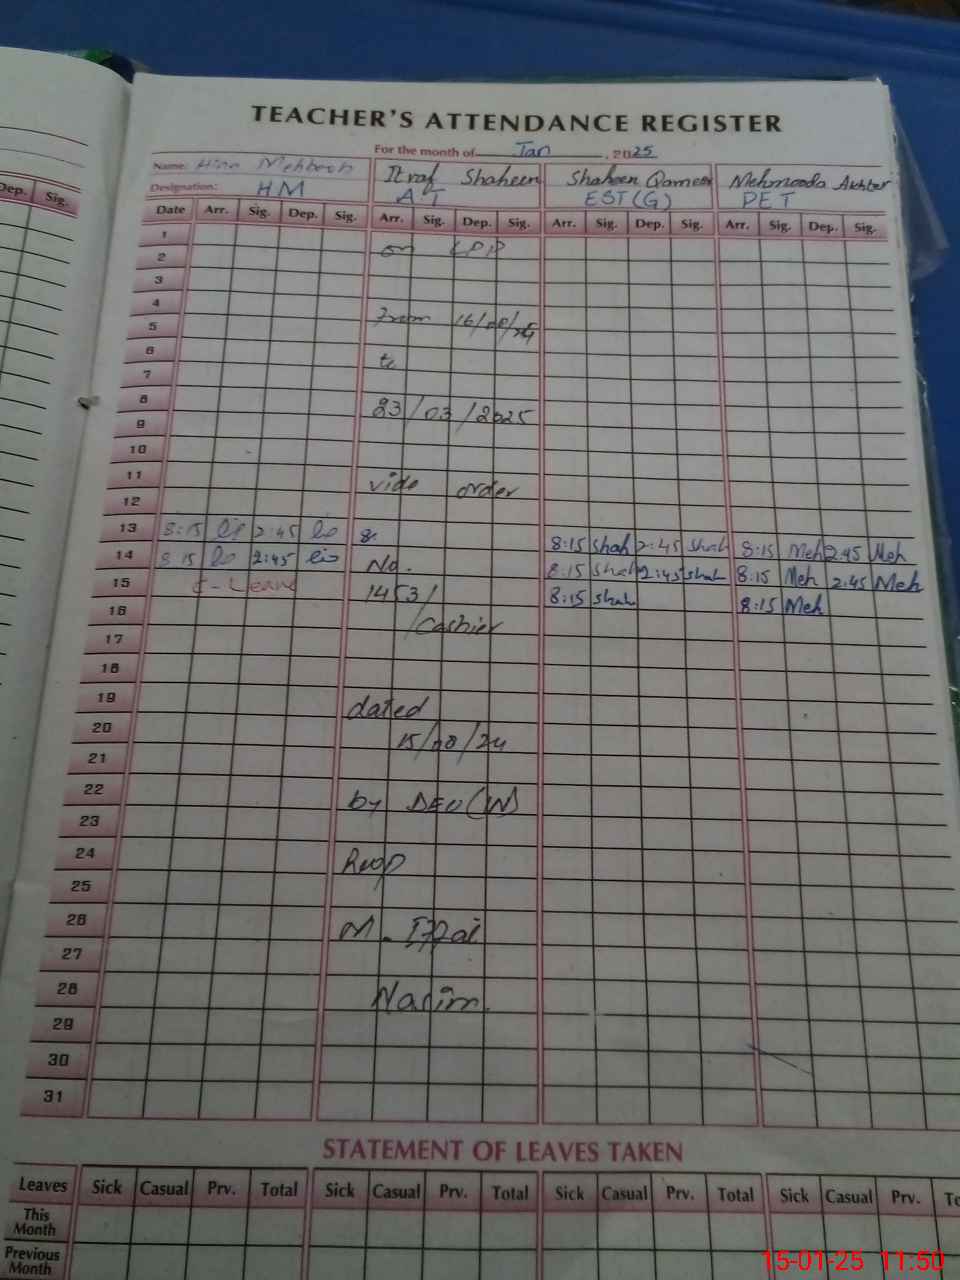 TEACHER'S ATTENDANCE REGISTER
For the month of Jan, 2025
Name: Hina Mehboob Itraf Shaheen Shaheen Qamer Mehmooda Akhter
Designation: HM A.T EST(G) PET
Date Arr. Sig. Dep. Sig. Arr. Sig. Dep. Sig. Arr. Sig. Dep. Sig. Arr. Sig. Dep. Sig.
Dep. Sig.
1
2 on LPR
3
4
5 From 16/
6
7 to
8
9 23/03/2025
10
11
12 vide order
13 8:15 2:45 8: 8:15 Shah 2:45 Shah 8:15 Meh 2:45 Meh
14 8:15 2:45 No. 8:15 Shah 2:45 Shah 8:15 Meh 2:45 Meh
15 C-Leave 1453/ 8:15 Shah 8:15 Meh
16 Cashier
17
18
19 dated
20 15/08/24
21
22 by DEO(W)
23
24
25
26 M.
27
28 Nasim.
29
30
31
STATEMENT OF LEAVES TAKEN
Leaves Sick Casual Prv. Total Sick Casual Prv. Total Sick Casual Prv. Total Sick Casual Prv.
This
Month
Previous
Month
15-01-25 11:50